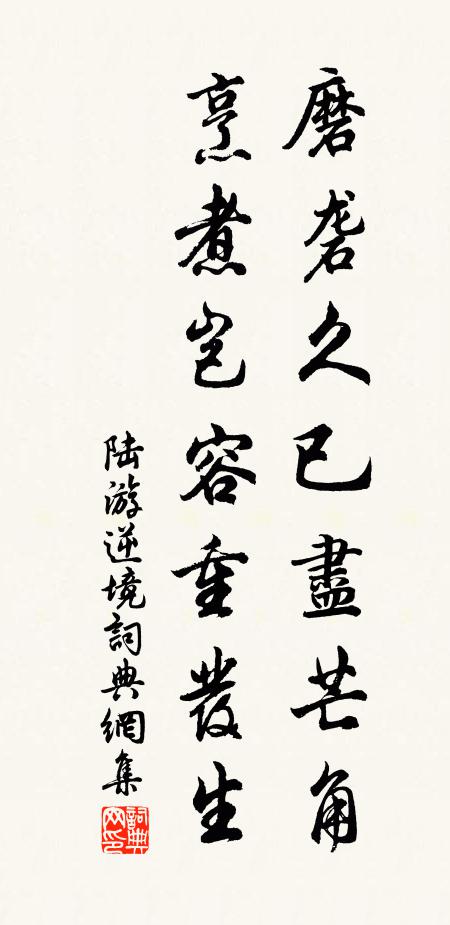 磨礱久已盡芒角
烹煮豈容重發生
陸游逆境詞典網集
詞典網印